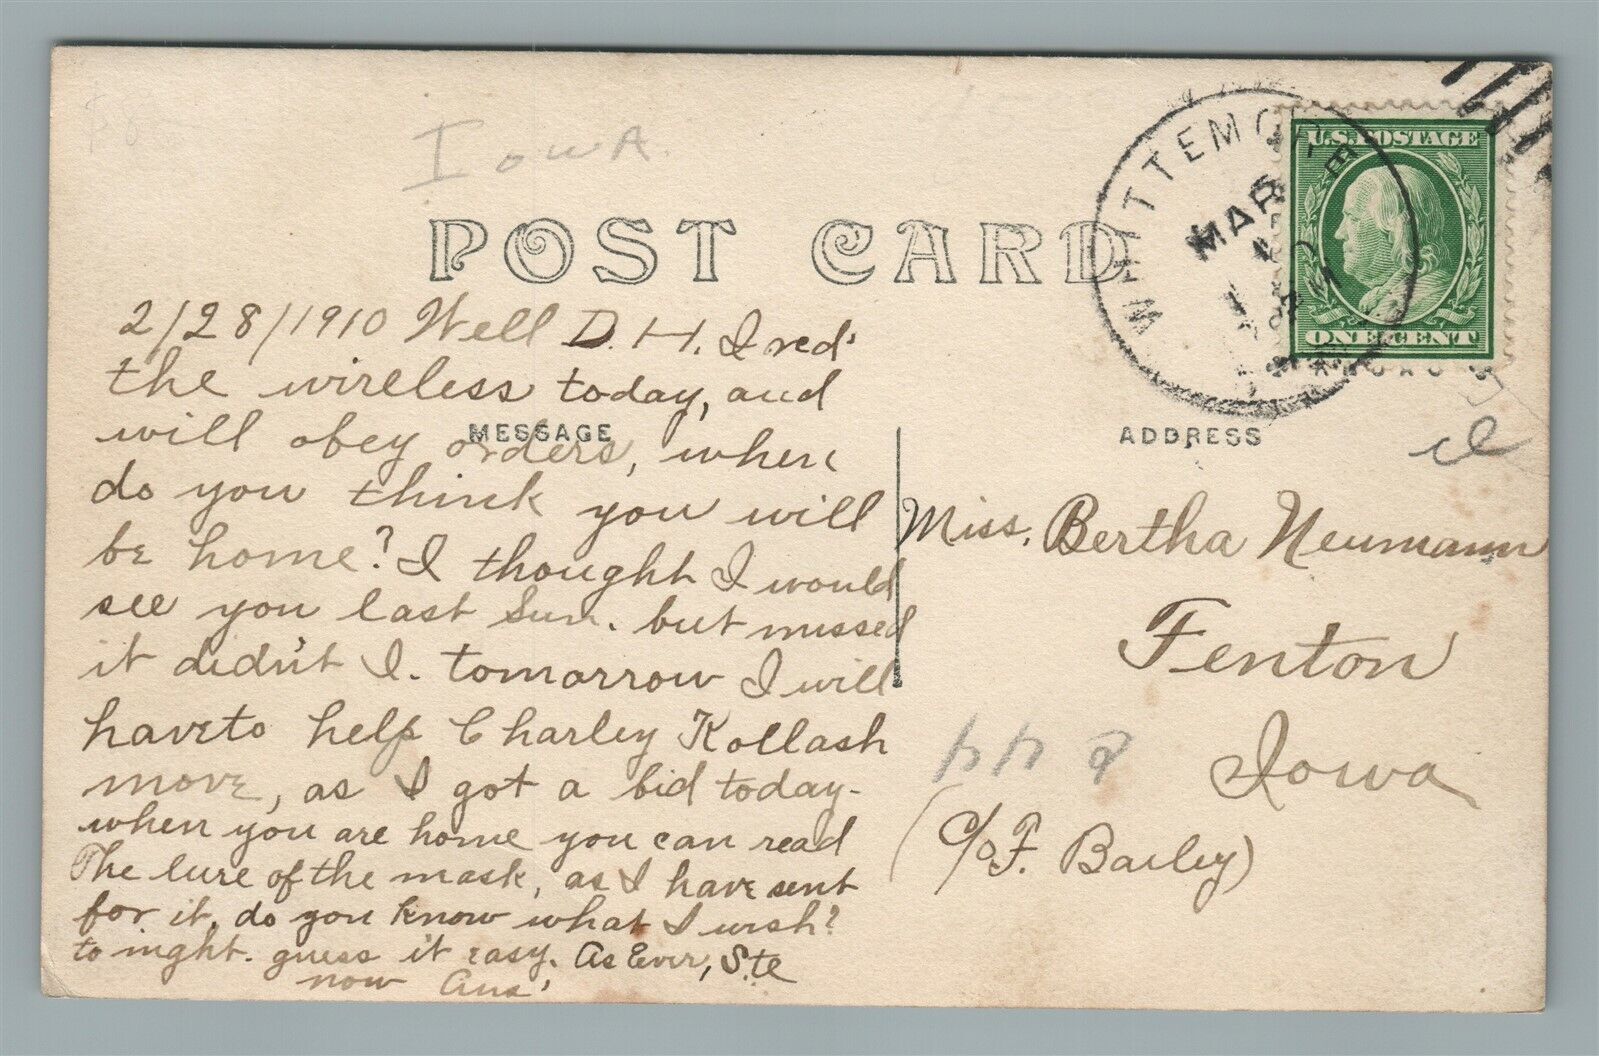 Iowa
POST CARD
WHITTEMORE
MAR
1
U.S. POSTAGE
ONE CENT
2/28/1910 Well D. H. I recd'
the wireless today, and
MESSAGE
will obey orders, when
do you think you will
be home? I thought I would
see you last Sun. but missed
it didn't I. tomorrow I will
have to help Charley Kollash
move, as I got a bid today-
when you are home you can read
The lure of the mask, as I have sent
for it. do you know what I wish?
to night. guess it easy. As Ever, Ste
now Ans'
ADDRESS
Miss. Bertha Neumann
Fenton
Iowa
(c/o F. Bailey)